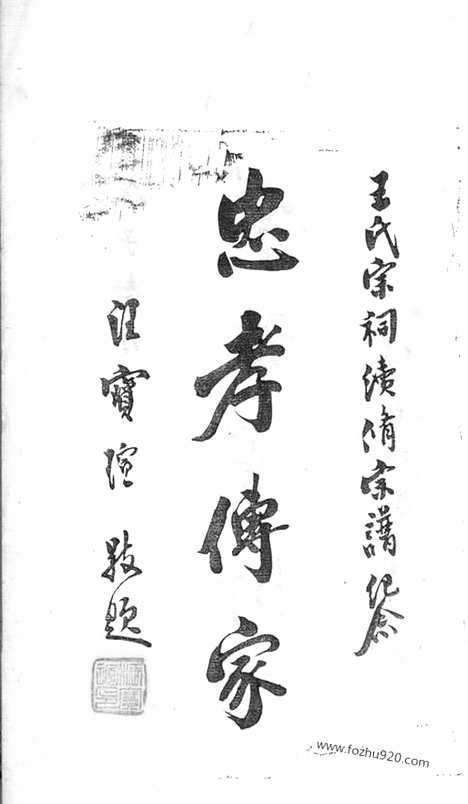 王氏宗祠續脩宗譜紀念
忠孝傳家
汪寶瑄敬題
www.fozhu920.com